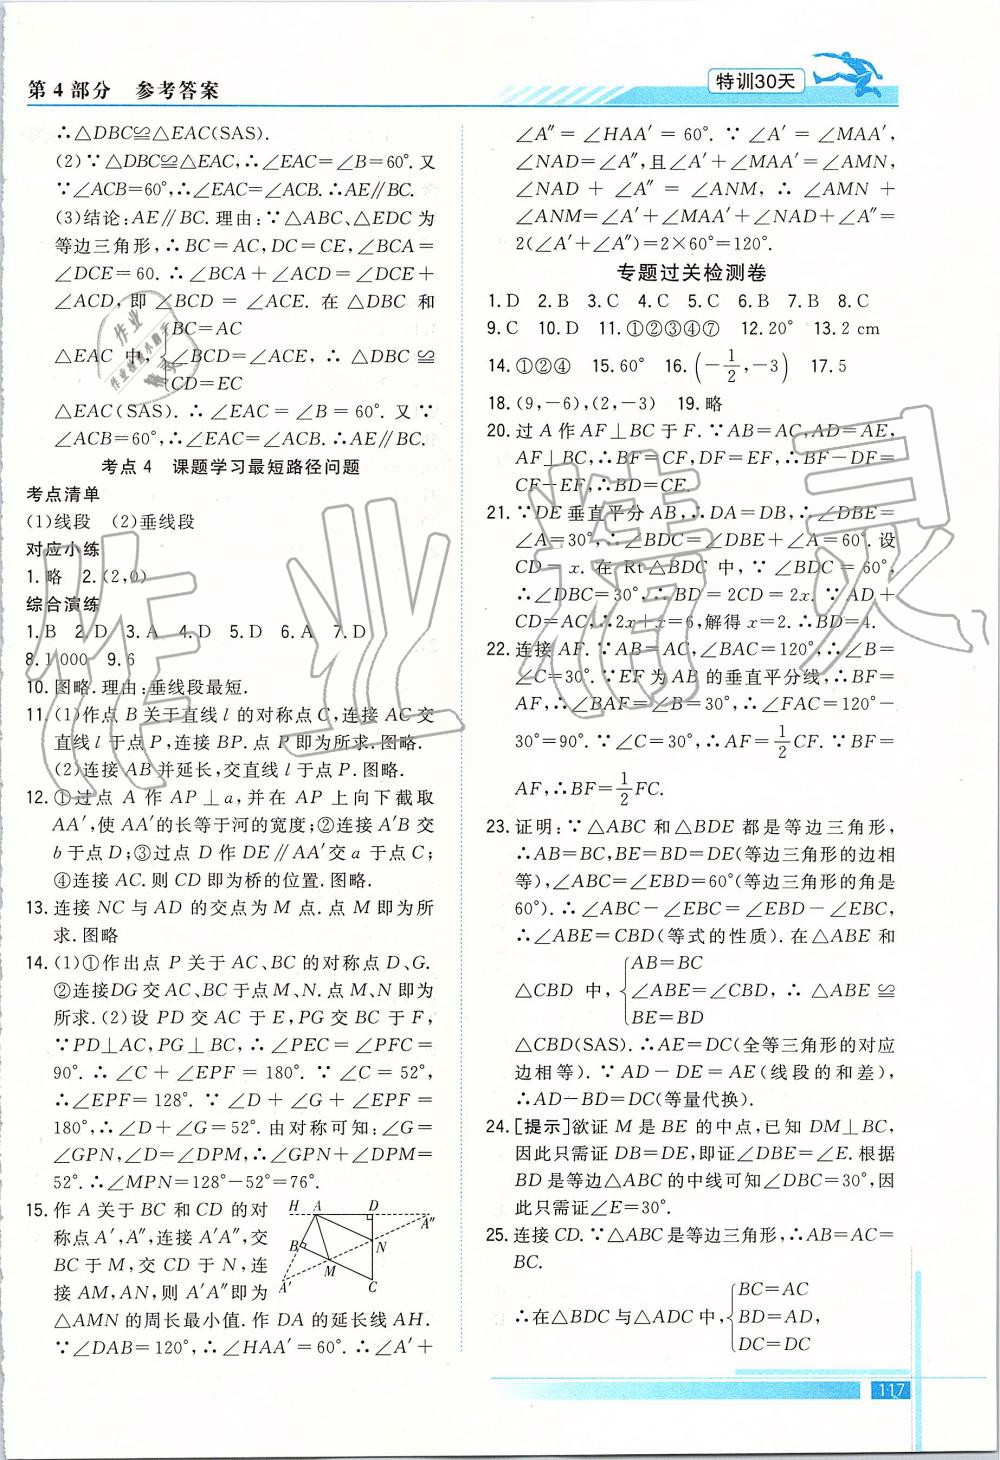 第4部分 参考答案
特训30天
∴△DBC≌△EAC(SAS).
(2)∵△DBC≌△EAC,∴∠EAC=∠B=60°.又
∵∠ACB=60°,∴∠EAC=∠ACB.∴AE∥BC.
(3)结论:AE∥BC.理由:∵△ABC、△EDC为
等边三角形,∴BC=AC,DC=CE,∠BCA=
∠DCE=60.∴∠BCA+∠ACD=∠DCE+
∠ACD,即∠BCD=∠ACE.在△DBC和
BC=AC
△EAC中,∠BCD=∠ACE,∴△DBC≌
CD=EC
△EAC(SAS).∴∠EAC=∠B=60°.又∵
∠ACB=60°,∴∠EAC=∠ACB.∴AE∥BC.
考点4 课题学习最短路径问题
考点清单
(1)线段 (2)垂线段
对应小练
1.略 2.(2,0)
综合演练
1.B 2.D 3.A 4.D 5.D 6.A 7.D
8.1000 9.6
10.图略.理由:垂线段最短.
11.(1)作点B关于直线l的对称点C,连接AC交
直线l于点P,连接BP.点P即为所求.图略.
(2)连接AB并延长,交直线l于点P.图略.
12.①过点A作AP⊥a,并在AP上向下截取
AA′,使AA′的长等于河的宽度;②连接A′B交
b于点D;③过点D作DE∥AA′交a于点C;
④连接AC.则CD即为桥的位置.图略.
13.连接NC与AD的交点为M点.点M即为所
求.图略
14.(1)①作出点P关于AC、BC的对称点D、G.
②连接DG交AC、BC于点M、N.点M、N即为
所求.(2)设PD交AC于E,PG交BC于F,
∵PD⊥AC,PG⊥BC,∴∠PEC=∠PFC=
90°.∴∠C+∠EPF=180°.∵∠C=52°,
∴∠EPF=128°.∵∠D+∠G+∠EPF=
180°,∴∠D+∠G=52°.由对称可知:∠G=
∠GPN,∠D=∠DPM,∴∠GPN+∠DPM=
52°.∴∠MPN=128°-52°=76°.
15.作A关于BC和CD的对
称点A′,A″,连接A′A″,交
BC于M,交CD于N,连
接AM,AN,则A′A″即为
△AMN的周长最小值.作DA的延长线AH.
∵∠DAB=120°,∴∠HAA′=60°.∴∠A′+
H A D A″
B N
A′ M C
∠A″=∠HAA′=60°.∵∠A′=∠MAA′,
∠NAD=∠A″,且∠A′+∠MAA′=∠AMN,
∠NAD+∠A″=∠ANM,∴∠AMN+
∠ANM=∠A′+∠MAA′+∠NAD+∠A″=
2(∠A′+∠A″)=2×60°=120°.
专题过关检测卷
1.D 2.B 3.C 4.C 5.C 6.B 7.B 8.C
9.C 10.D 11.①②③④⑦ 12.20° 13.2 cm
14.①②④ 15.60° 16.(-1/2,-3) 17.5
18.(9,-6),(2,-3) 19.略
20.过A作AF⊥BC于F.∵AB=AC,AD=AE,
AF⊥BC,∴BF=CF,DF=EF,∴BF-DF=
CF-EF,∴BD=CE.
21.∵DE垂直平分AB,∴DA=DB,∴∠DBE=
∠A=30°,∴∠BDC=∠DBE+∠A=60°.设
CD=x.在Rt△BDC中,∵∠BDC=60°,
∴∠DBC=30°,∴BD=2CD=2x.∵AD+
CD=AC,∴2x+x=6,解得x=2.∴BD=4.
22.连接AF.∵AB=AC,∠BAC=120°,∴∠B=
∠C=30°.∵EF为AB的垂直平分线,∴BF=
AF,∴∠BAF=∠B=30°,∴∠FAC=120°-
30°=90°.∵∠C=30°,∴AF=1/2CF.∵BF=
AF,∴BF=1/2FC.
23.证明:∵△ABC和△BDE都是等边三角形,
∴AB=BC,BE=BD=DE(等边三角形的边相
等),∠ABC=∠EBD=60°(等边三角形的角是
60°).∴∠ABC-∠EBC=∠EBD-∠EBC,
∴∠ABE=CBD(等式的性质).在△ABE和
AB=BC
△CBD中,∠ABE=∠CBD,∴△ABE≌
BE=BD
△CBD(SAS).∴AE=DC(全等三角形的对应
边相等).∵AD-DE=AE(线段的和差),
∴AD-BD=DC(等量代换).
24.[提示]欲证M是BE的中点,已知DM⊥BC,
因此只需证DB=DE,即证∠DBE=∠E.根据
BD是等边△ABC的中线可知∠DBC=30°,因
此只需证∠E=30°.
25.连接CD.∵△ABC是等边三角形,∴AB=AC=
BC.
BC=AC
∴在△BDC与△ADC中,BD=AD,
DC=DC
117
作业精灵